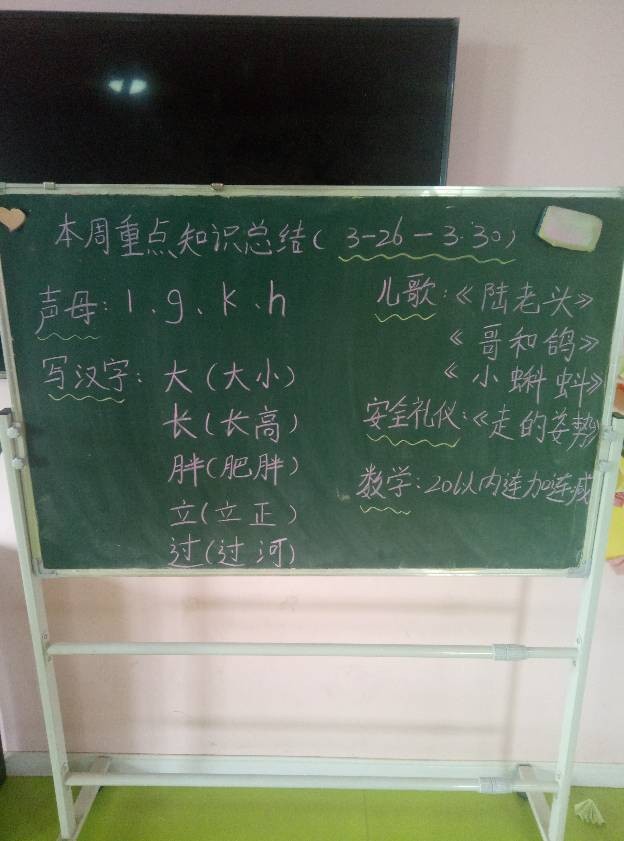 本周重点知识总结(3-26-3.30)
声母:l、g、k、h
写汉字:大(大小)
长(长高)
胖(肥胖)
立(立正)
过(过河)
儿歌:《陆老头》
《哥和鸽》
《小蝌蚪》
安全礼仪:《走的姿势》
数学:20以内连加连减